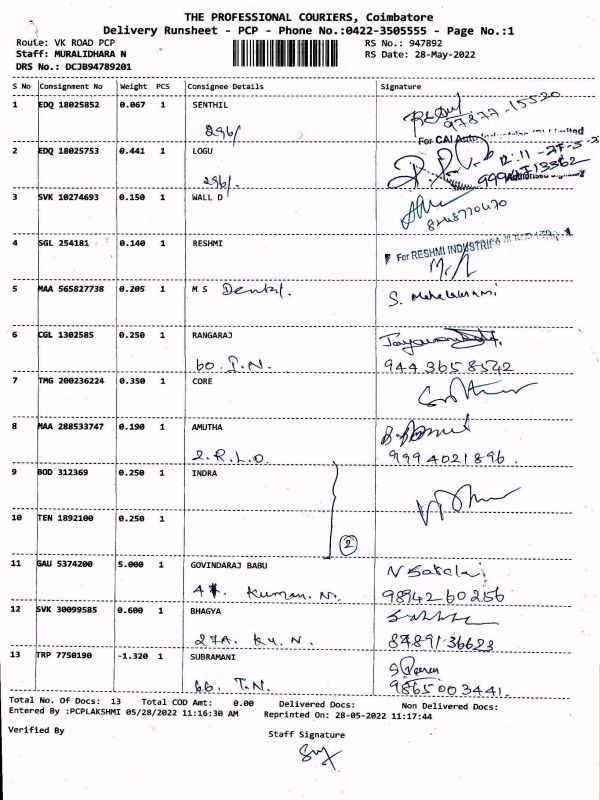 THE PROFESSIONAL COURIERS, Coimbatore
Delivery Runsheet - PCP - Phone No.:0422-3505555 - Page No.:1
Route: VK ROAD PCP RS No.: 947892
Staff: MURALIDHARA N RS Date: 28-May-2022
DRS No.: DCJB94789201
S No Consignment No Weight PCS Consignee Details Signature
1 EDQ 18025852 0.067 1 SENTHIL
296/ 97877-15520
For CAI
2 EDQ 18025753 0.441 1 LOGU
296/.
3 SVK 10274693 0.150 1 WALL D
4 SGL 254181 0.140 1 RESHMI For RESHMI INDUSTRIES
5 MAA 565827738 0.205 1 M S Dental. S. Mahalakshmi
6 CGL 1302585 0.250 1 RANGARAJ
60. T.N. 944 3658542
7 TMG 200236224 0.350 1 CORE
8 MAA 288533747 0.190 1 AMUTHA
2. R.L.O. 9994021896.
9 BOD 312369 0.250 1 INDRA
10 TEN 1892100 0.250 1
2
11 GAU 5374200 5.000 1 GOVINDARAJ BABU
Kumaran. N. 9894260256
12 SVK 30099585 0.600 1 BHAGYA
27A. K.U. N. 87891-36623
13 TRP 7750190 -1.320 1 SUBRAMANI
66. T.N. 9865003441.
Total No. Of Docs: 13 Total COD Amt: 0.00 Delivered Docs: Non Delivered Docs:
Entered By :PCPLAKSHMI 05/28/2022 11:16:30 AM Reprinted On: 28-05-2022 11:17:44
Verified By Staff Signature